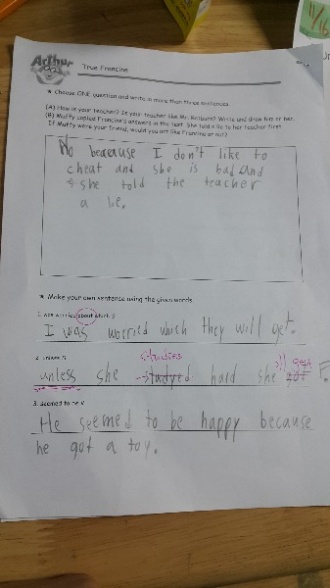 Arthur
True Francine
★ Choose ONE question and write in more than three sentences.
(A) How is your teacher? Is your teacher like Mr. Ratburn? Write and draw him or her.
(B) Muffy copied Francine's answers in the test. She told a lie to her teacher first.
If Muffy were your friend, would you like Francine or not?
No because I don't like to
cheat and she is bad and
she told the teacher
a lie.
★ Make your own sentence using the given words.
about
I was worried which they will get.
studies
unless she studyed hard she got F.
3. seemed to be
He seemed to be happy because
he got a toy.